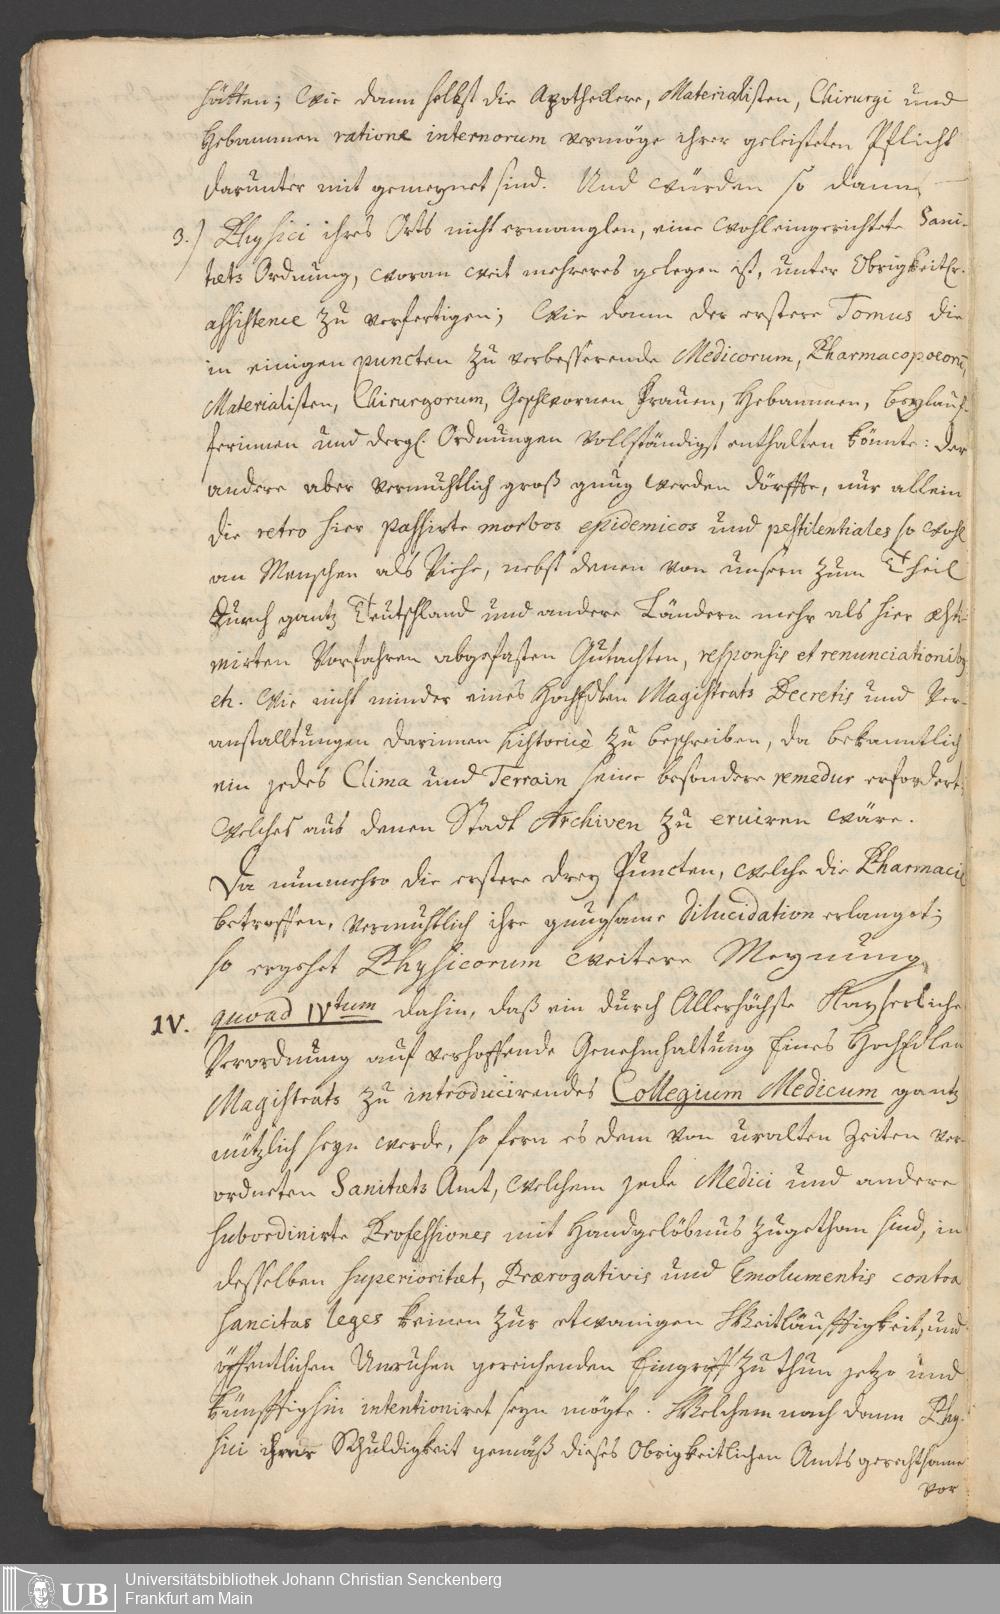 hätten; Wie dann selbst die Apotheckere, Materialisten, Chirurgi und
Hebammen ratione internorum vermöge ihrer geleisteten Pflicht
darunter mit gemeynet sind. Und würden so dann
3.) Physici ihres Orts nicht ermanglen, eine wohleingerichtete Sani-
tæts Ordnung, woran weit mehreres gelegen ist, unter Obrigkeitl.
assistence zu verfertigen; Wie dann der erstere Tomus die
in einigen puncten zu verbesserende Medicorum, Pharmacopoeorū,
Materialisten, Chirurgorum, Geschwornen Frauen, Hebammen, Beylauf-
ferinnen und dergl. Ordnungen vollständigst enthalten könnte: der
andere aber vermuthlich groß gnug werden dörffte, nur allein
die retro hier passirte morbos epidemicos und pestilentiales so wohl
an Menschen als Viehe, nebst denen von unsern zum Theil
durch gantz Teutschland und andere Ländern mehr als hier æsti-
mirten Vorfahren abgefasten Gutachten, responsis et renunciationibq
etc. Wie nicht minder eines HochEdlen Magistrats Decretis und Ver-
anstalltungen darinnen historicè zu beschreiben, da bekanntlich
ein jedes Clima und Terrain seine besondere remedur erfordert:
Welches aus denen Stadt Archiven zu eruiren wäre.
Da nunmehro die erstere drey Puncten, welche die Pharmacie
betroffen, vermuthlich ihre gnugsame Dilucidation erlanget;
so ergehet Physicorum weitere Meynung
IV. quoad IVtum dahin, daß ein durch Allerhöchste Kayserliche
Verordnung auf verhoffende Genehmhaltung Eines HochEdlen
Magistrats zu introducirendes Collegium Medicum gantz
nützlich seyn werde, so fern es dem von uralten Zeiten ver-
ordneten Sanitæts Amt, welchem jede Medici und andere
subordinirte Professiones mit Handgelöbnus zugethan sind, in
desselben superioritæt, Prærogativis und Emolumentis contra
sancitas leges keinen zur etwanigen Weitläufftigkeit, und
öffentlichen Unruhen gereichenden Eingriff zu thun jetzo und
künfftighin intentioniret seyn mögte. Welchem nach dann Phy-
sici ihrer Schuldigkeit gemäß dieses Obrigkeitlichen Amts gerechtsame
vor
UB Universitätsbibliothek Johann Christian Senckenberg
Frankfurt am Main